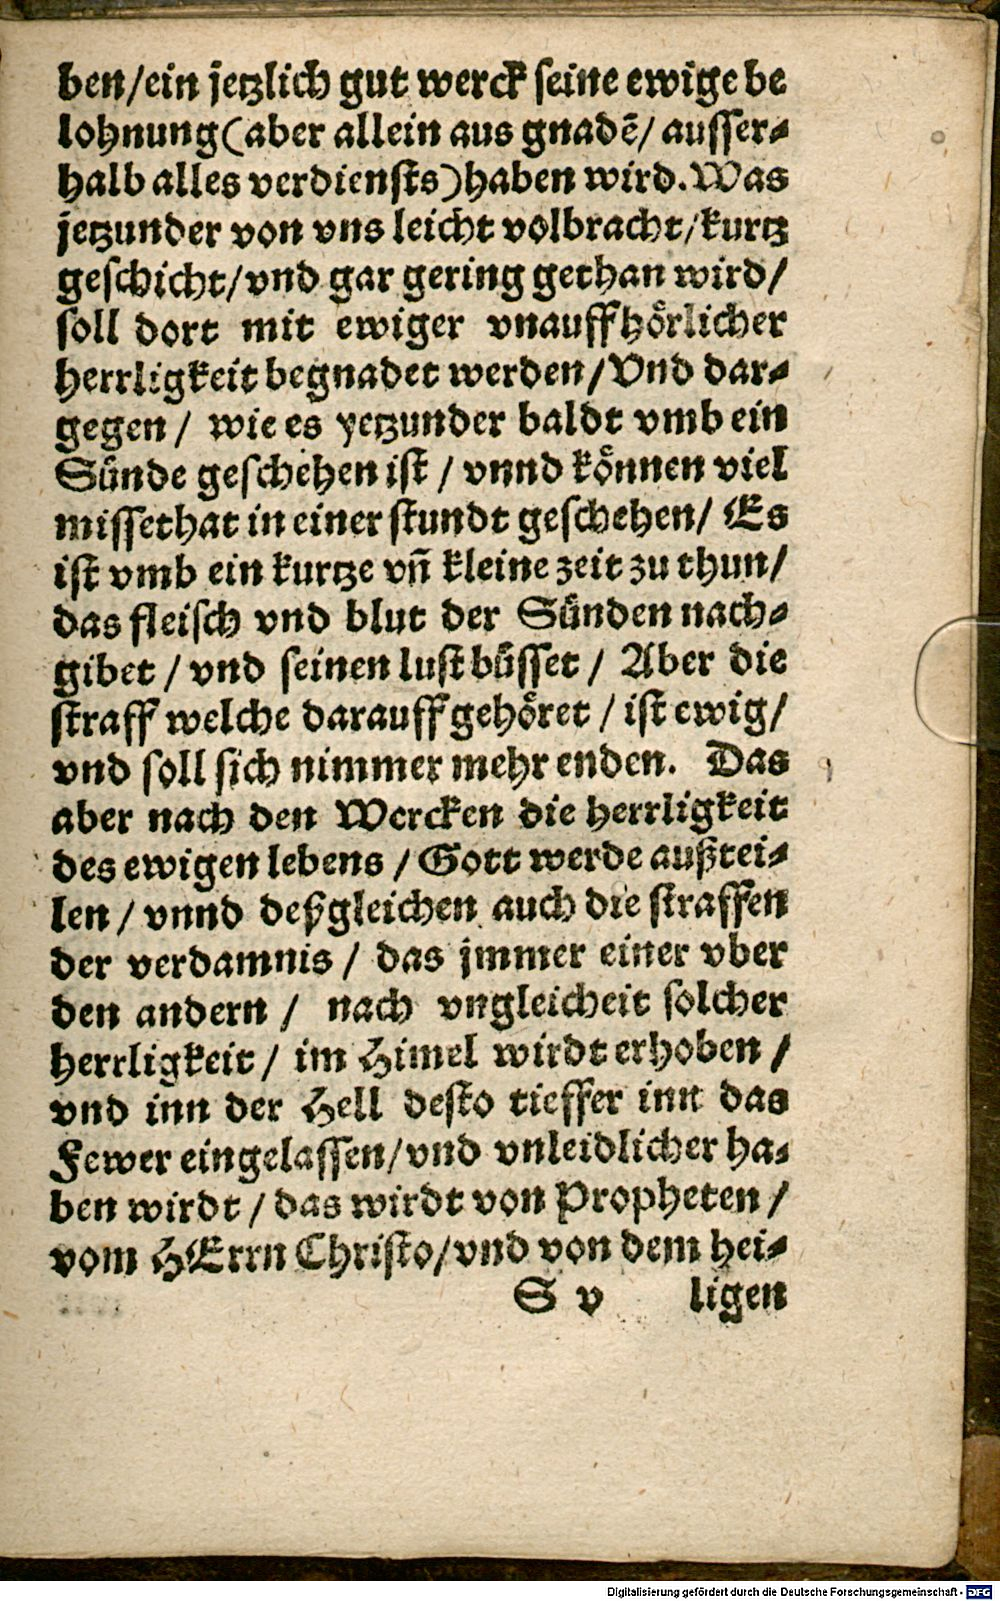 ben/ein jetzlich gut werck seine ewige be
lohnung(aber allein aus gnadē/ ausser-
halb alles verdiensts)haben wird. Was
jetzunder von vns leicht volbracht/kurtz
geschicht/vnd gar gering gethan wird/
soll dort mit ewiger vnauffhörlicher
herrligkeit begnadet werden/Vnd dar-
gegen / wie es yetzunder baldt vmb ein
Sünde geschehen ist / vnnd können viel
missethat in einer stundt geschehen/ Es
ist vmb ein kurtze vn̄ kleine zeit zu thun/
das fleisch vnd blut der Sünden nach-
gibet / vnd seinen lust büsset / Aber die
straff welche darauff gehöret / ist ewig/
vnd soll sich nimmer mehr enden. Das
aber nach den Wercken die herrligkeit
des ewigen lebens / Gott werde außtei-
len / vnnd deßgleichen auch die straffen
der verdamnis / das jmmer einer vber
den andern / nach vngleicheit solcher
herrligkeit / im Himel wirdt erhoben /
vnd inn der Hell desto tieffer inn das
Fewer eingelassen/vnd vnleidlicher ha-
ben wirdt / das wirdt von Propheten /
vom HErrn Christo/vnd von dem hei-
S v ligen
Digitalisierung gefördert durch die Deutsche Forschungsgemeinschaft - DFG